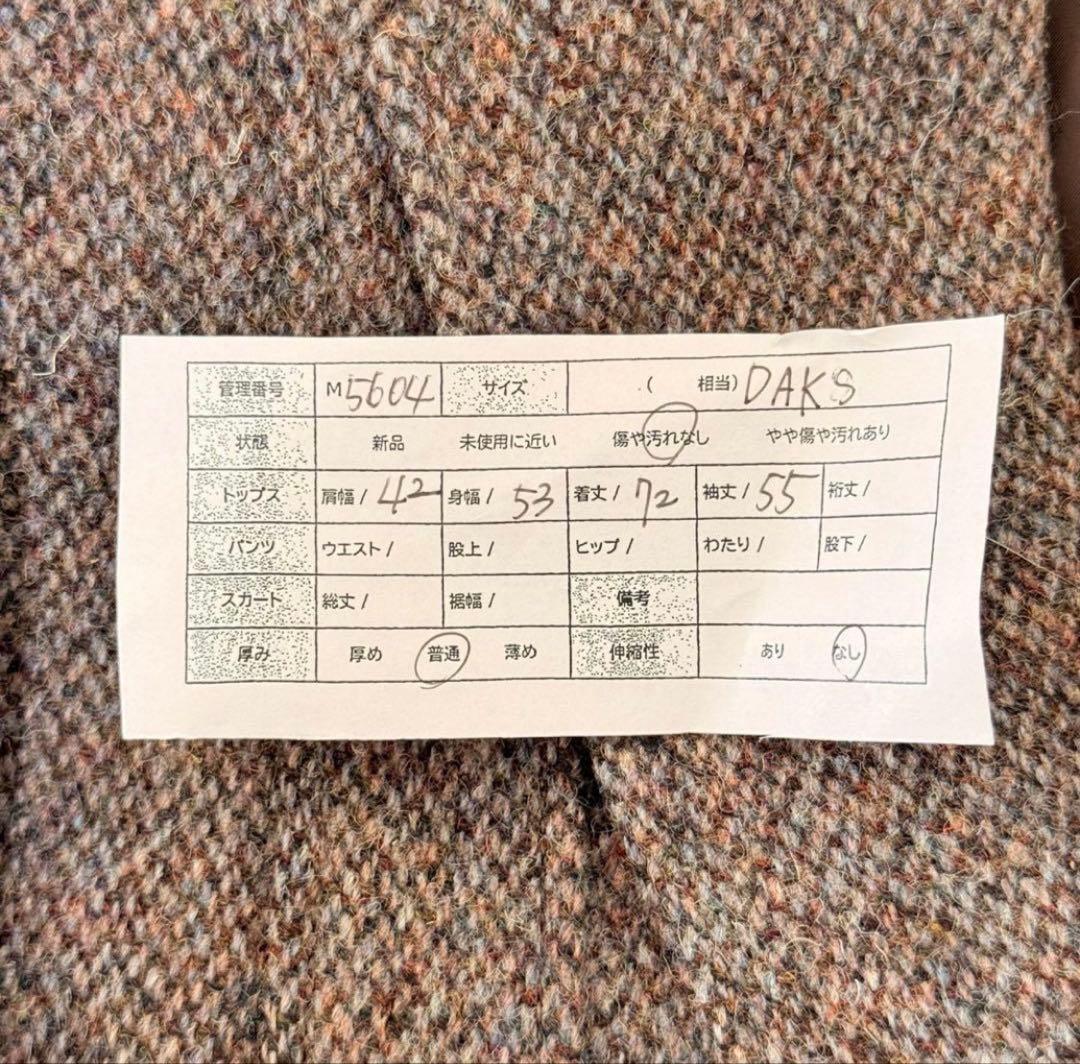 管理番号 M5604 サイズ ( 相当) DAKS
状態 新品 未使用に近い 傷や汚れなし やや傷や汚れあり
トップス 肩幅 / 42 身幅 / 53 着丈 / 72 袖丈 / 55 裄丈 /
パンツ ウエスト / 股上 / ヒップ / わたり / 股下 /
スカート 総丈 / 裾幅 / 備考
厚み 厚め 普通 薄め 伸縮性 あり なし